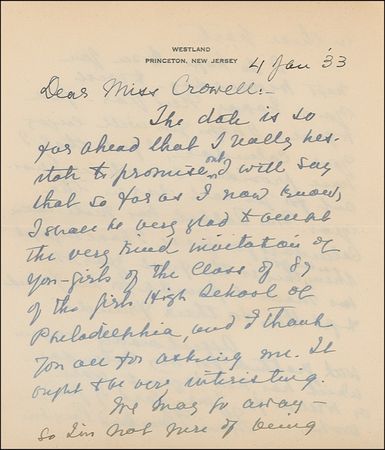 WESTLAND
PRINCETON, NEW JERSEY
4 Jan '33
Dear Miss Crowell:-
The date is so
far ahead that I really hes-
itate to promise but I will say
that so far as I now know,
I shall be very glad to accept
the very kind invitation of
you-girls of the Class of 87
of the Girls High School of
Philadelphia, and I thank
you all for asking me. It
ought to be very interesting.
We may go away-
so I'm not sure of being